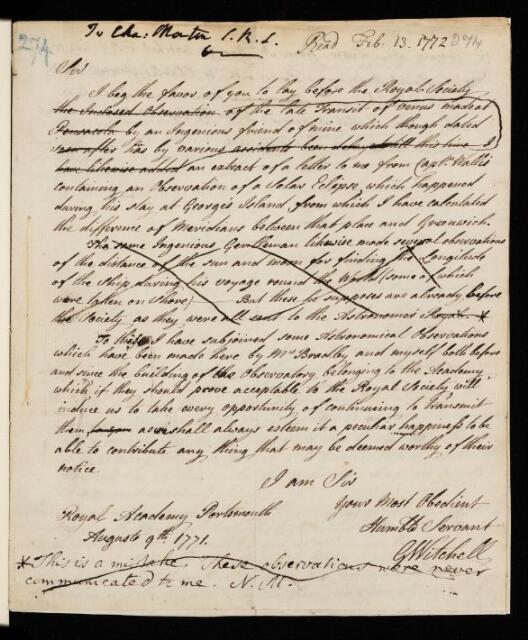 274
To Cha: Morton S.R.S.
Read Feb. 13. 1772 274
Sir
I beg the favor of you to lay before the Royal Society
the Inclosed Observation of the late Transit of Venus made at
Pensacola by an Ingenious friend of mine which though dated
soon after has by various accidents been delay'd till this time I
have likewise added an extract of a letter to me from Capt. Wallis
containing an Observation of a Solar Eclipse, which happened
during his stay at Georges Island, from which I have calculated
the difference of Meridians between that place and Greenwich.
The same Ingenious Gentleman likewise made several observations
of the distance of the sun and moon for finding the Longitude
of the Ship during his voyage round the World (some of which
were taken on Shore) But these he supposes are already before
the Society as they were all sent to the Astronomer Royal. *
To this I have subjoined some Astronomical Observations
which have been made here by Mr Bradley and myself both before
and since the building of the Observatory belonging to the Academy
which if they should prove acceptable to the Royal Society will
induce us to take every opportunity of continuing to Transmit
them as we shall always esteem it a peculiar happiness to be
able to contribute any thing that may be deemed worthy of their
notice
I am Sir
Your Most Obedient
Humble Servant
G Witchell
Royal Academy Portsmouth
August 9th. 1771.
* This is a mistake. These observations were never
communicated to me. N. M.